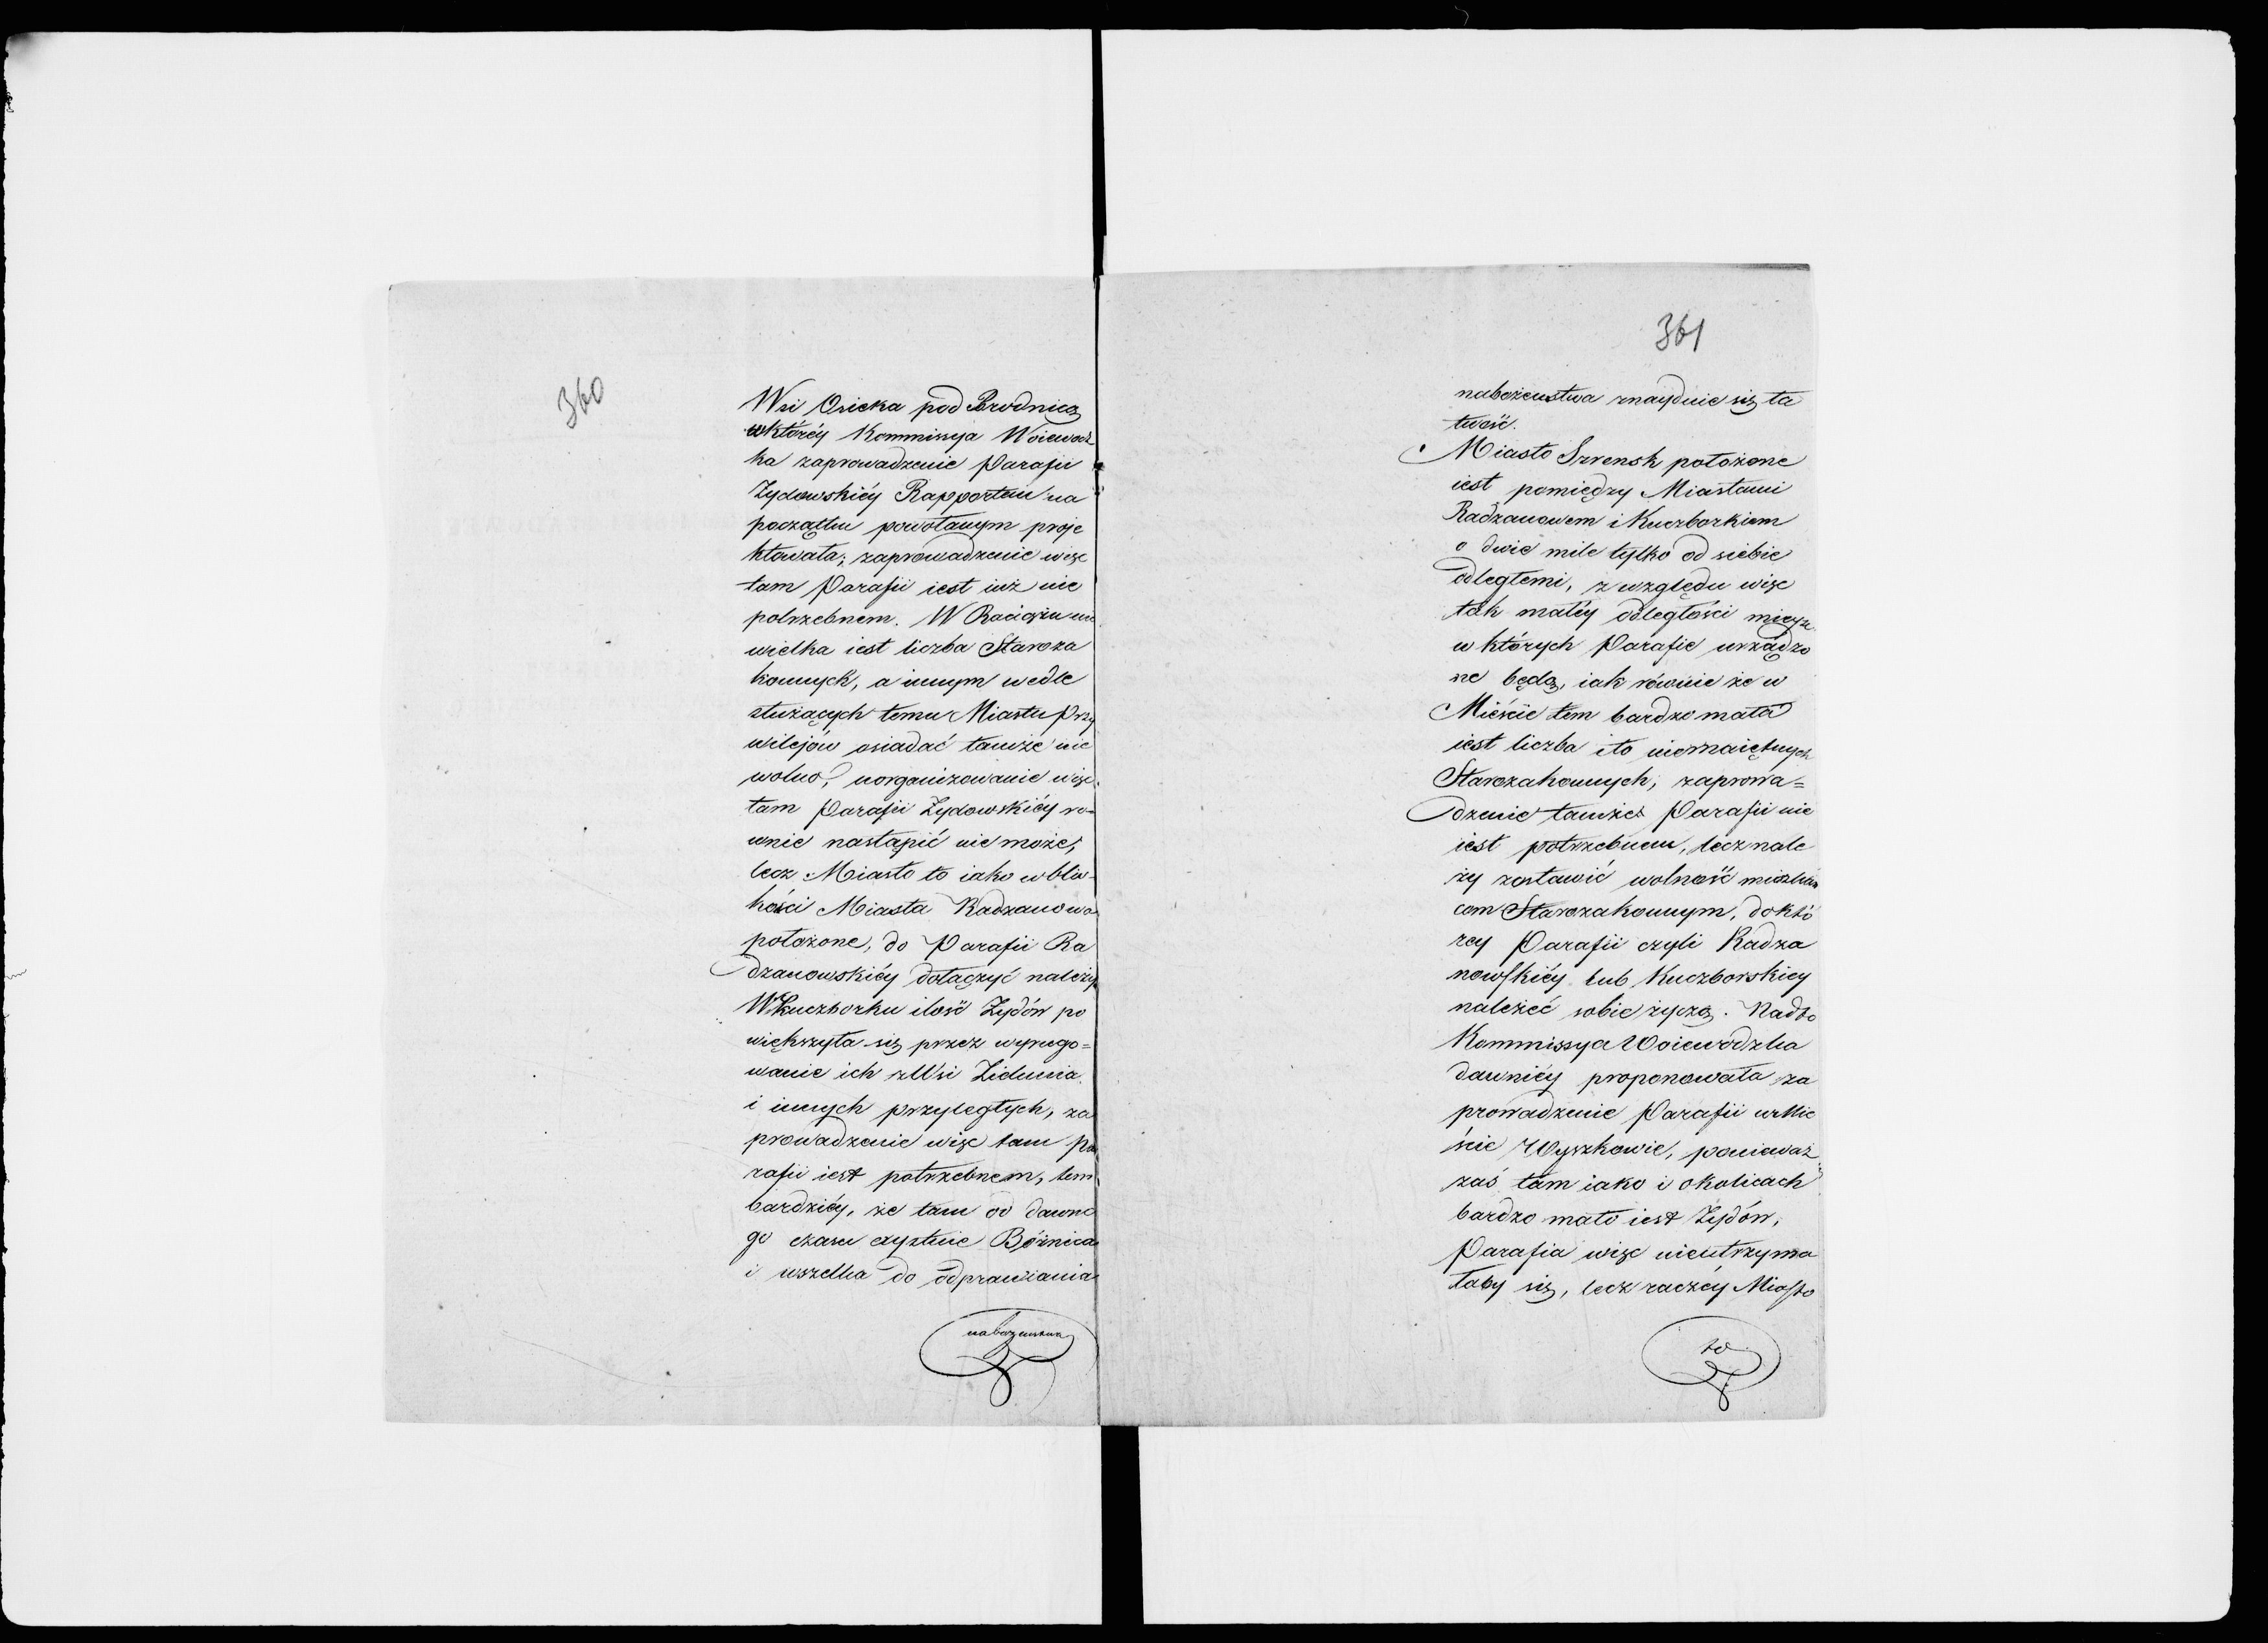 360
Wsi Osieka pod Brodnicą
wktóréy Kommissya Woiewódz
ka zaprowadzenie Parafii
Żydowskiéy Rapportem na
początku powołanym proje
ktowała; zaprowadzenie więc
tam Parafii iest iuż nie
potrzebnem. W Raciążu nie
wielka iest liczba Staroza
konnych, a innym wedle
służących temu Miastu Przy
wilejów osiadać tamże nie
wolno, uorganizowanie więc
tam Parafii Żydowskiéy ró-
wnie nastąpić nie może,
lecz Miasto to iako wbliz-
kości Miasta Radzanowa
położone, do Parafii Ra
dzanowskiéy dołączyć należy
W Kuczborku ilość Żydów po
większyła się przez wyrugo=
wanie ich z Wsi Zielunia
i innych przyległych, za
prowadzenie więc tam Pa
rafii iest potrzebnem, tem
bardziéy, że tam od dawne
go czasu exystuie Bóżnica
i wszelka do odprawiania
nabożeństwa
361
nabożenstwa znayduie się ła
twość.
Miasto Szrensk położone
iest pomiędzy Miastami
Radzanowem i Kuczborkiem
o dwie mile tylko od siebie
odległemi, z względu więc
tak małéy odległości mieysc
w których Parafie urządzo
ne będą, iak równie że w
Mieście tem bardzo mała
iest liczba i to niemaiętnych
Starozakonnych, zaprowa=
dzenie tamże Parafii nie
iest potrzebnem, lecz nale
ży zostawić wolność mieszkań
com Starozakonnym, do któ
rey Parafii czyli Radza
nowskiéy lub Kuczborskiey
należeć sobie życzą. Nadto
Kommissya Woiewódzka
dawniéy proponowała za
prowadzenie Parafii w Mie
ście Wyszkowie, ponieważ
zaś tam iako i okolicach
bardzo mało iest Żydów,
Parafia więc nieutrzyma
łaby się, lecz raczéy Miasto
to